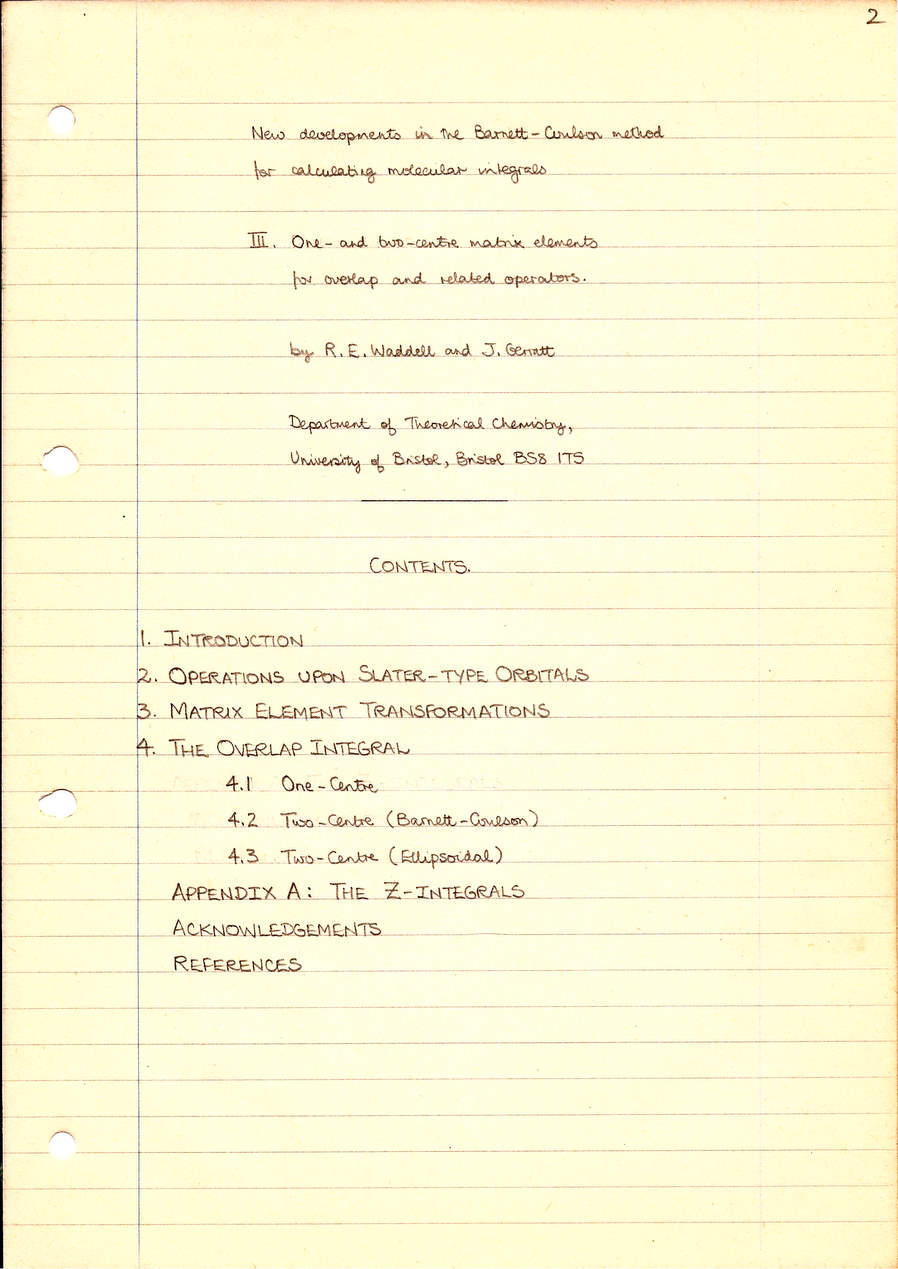 2
New developments in the Barnett-Coulson method
for calculating molecular integrals
III. One- and two-centre matrix elements
for overlap and related operators.
by R. E. Waddell and J. Gerratt
Department of Theoretical Chemistry,
University of Bristol, Bristol BS8 1TS
CONTENTS.
1. INTRODUCTION
2. OPERATIONS UPON SLATER-TYPE ORBITALS
3. MATRIX ELEMENT TRANSFORMATIONS
4. THE OVERLAP INTEGRAL
4.1 One-Centre
4.2 Two-Centre (Barnett-Coulson)
4.3 Two-Centre (Ellipsoidal)
APPENDIX A: THE Z-INTEGRALS
ACKNOWLEDGEMENTS
REFERENCES